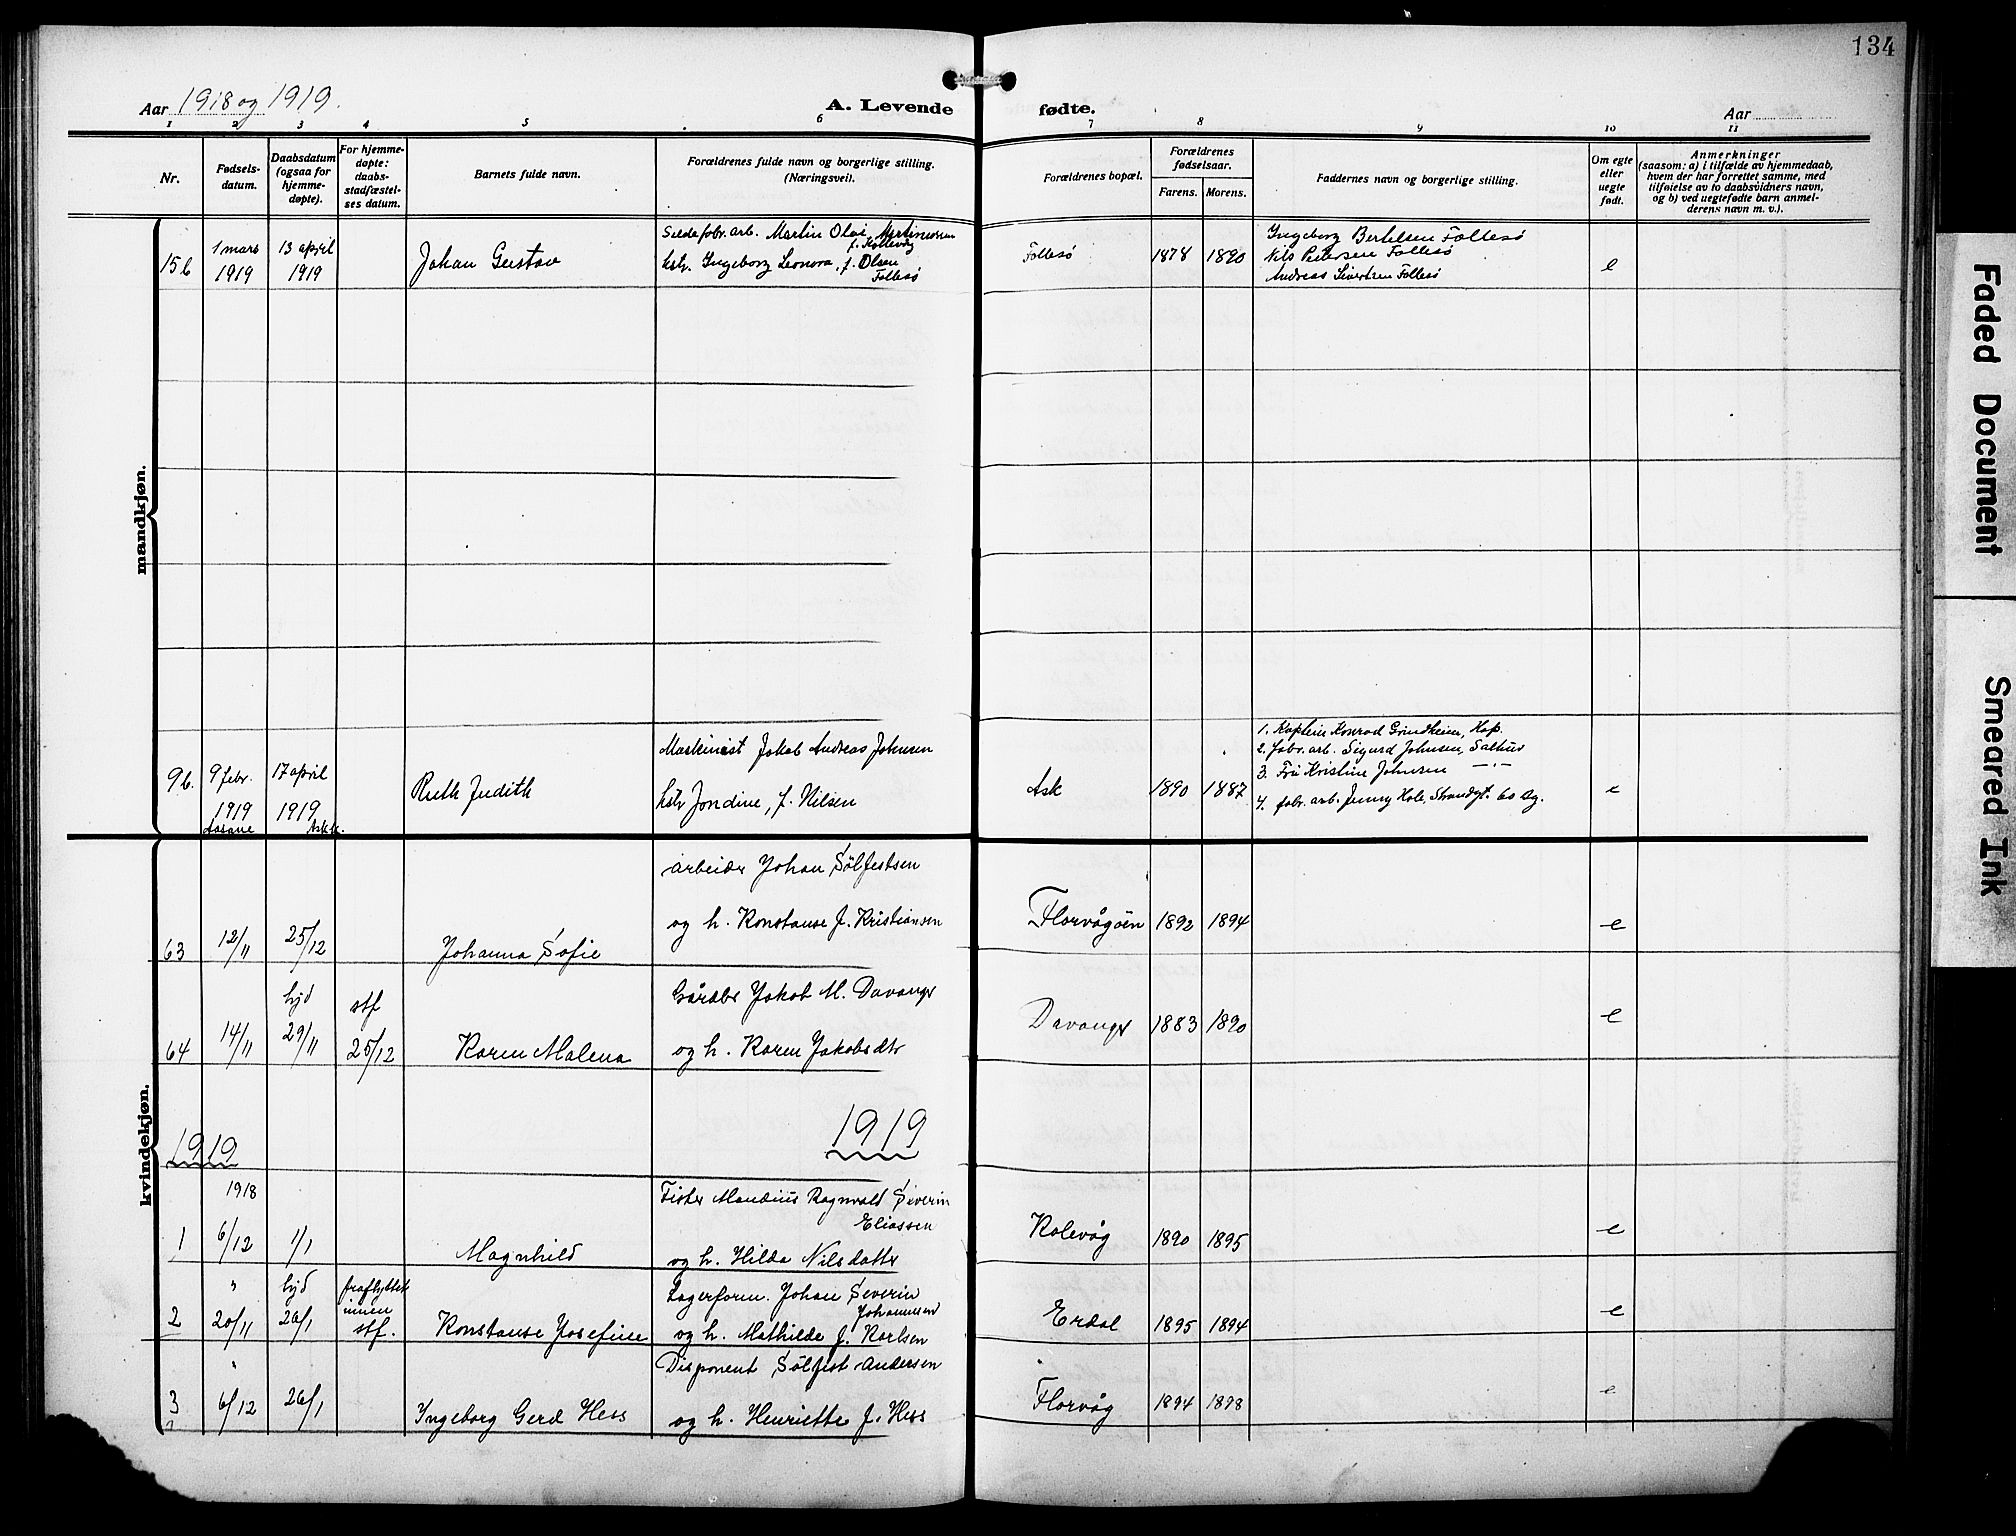 134
Aar 1918 og 1919.
A. Levende fødte.
Aar
1 2 3 4 5 6 7 8 9 10 11
Nr.
Fødsels-
datum.
Daabsdatum
(ogsaa for
hjemme-
døpte).
For hjemme-
døpte:
daabs-
stadfæstel-
ses datum.
Barnets fulde navn.
Forældrenes fulde navn og borgerlige stilling.
(Næringsvei).
Forældrenes bopæl.
Forældrenes
fødselsaar.
Farens. Morens.
Faddernes navn og borgerlige stilling.
Om egte
eller
uegte
født.
Anmerkninger
(saasom: a) i tilfælde av hjemmedaab,
hvem der har forrettet samme, med
tilføielse av to daabsvidners navn,
og b) ved uegtefødte barn anmel-
derens navn m. v.).
mandkjøn.
15b
1 mars
1919
13 april
1919
Johan Gustav
Sildefabr. arb. Martin Olai Martinussen
f. Kollevåg
hstr. Ingeborg Leonora, f. Olsen
Follesø
Follesø
1878 1890
Ingeborg Bertelsen Follesø
Nils Petersen Follesø
Andreas Sivertsen Follesø
e
9b.
9 febr.
1919
Aasane
17 april
1919
Askk.
Ruth Judith
Maskinist Jakob Andreas Johnsen
hstr Jondine, f. Nilsen
Ask
1890 1887
1. Kaptein Konrad Grindheim, Hop.
2. fabr. arb. Sigurd Johnsen, Salhus
3. Fru Kristine Johnsen —"—
4. fabr. arb. Jenny Hole, Strandgt. 60 Bg.
e
kvindekjøn.
63
12/11
25/12
Johanna Sofie
Arbeider Johan Sølfestsen
og h. Konstanse f. Kristiansen
Florvågøen
1892 1894
e
64
14/11
hjd
29/11
stf
25/12
Karen Malena
Gårdbr Jakob M. Davanger
og h. Karen Jakobsdtr
Davanger
1883 1890
e
1919
1919
1
1918
6/12
1/1
Magnhild
Fisker Mandius Ragnvald Severin
Eliassen
og h. Hilda Nilsdatter
Kolevåg
1890 1895
e
2
"
20/11
hjd
26/1
fraflyttet
innen
stf.
Konstanse Josefine
Lagerform. Johan Severin
Johannesen
og h. Mathilde f. Karlsen
Erdal
1895 1894
e
3
"
6/12
26/1
Ingeborg Gerd Hess
Disponent Sølfest Andersen
og h. Henriette f. Hess
Florvåg
1894 1898
e
Faded Document
Smeared Ink